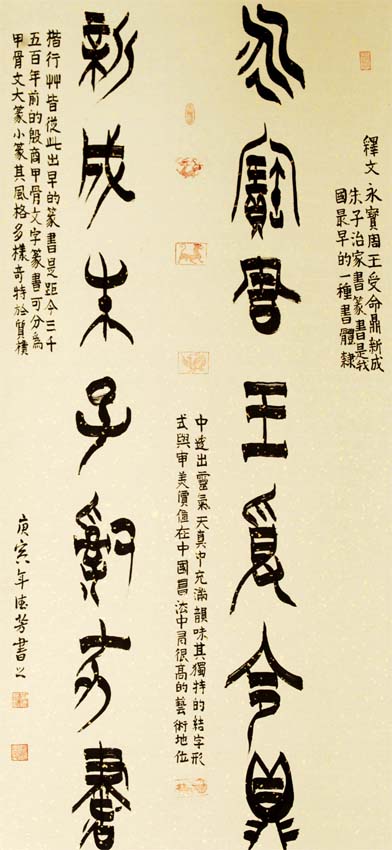 永寶周王受命鼎
新成朱子治家書
釋文永寶周王受命鼎新成
朱子治家書篆書是我
國最早的一種書體隸
楷行艸皆從此出早的篆書是距今三千
五百年前的殷商甲骨文字篆書可分為
甲骨文大篆小篆其風格多樣奇特於質樸
中透出靈氣天真中充滿韻味其獨特的結字形
式與審美價值在中國書法中居很高的藝術地位
庚寅年德芳書之